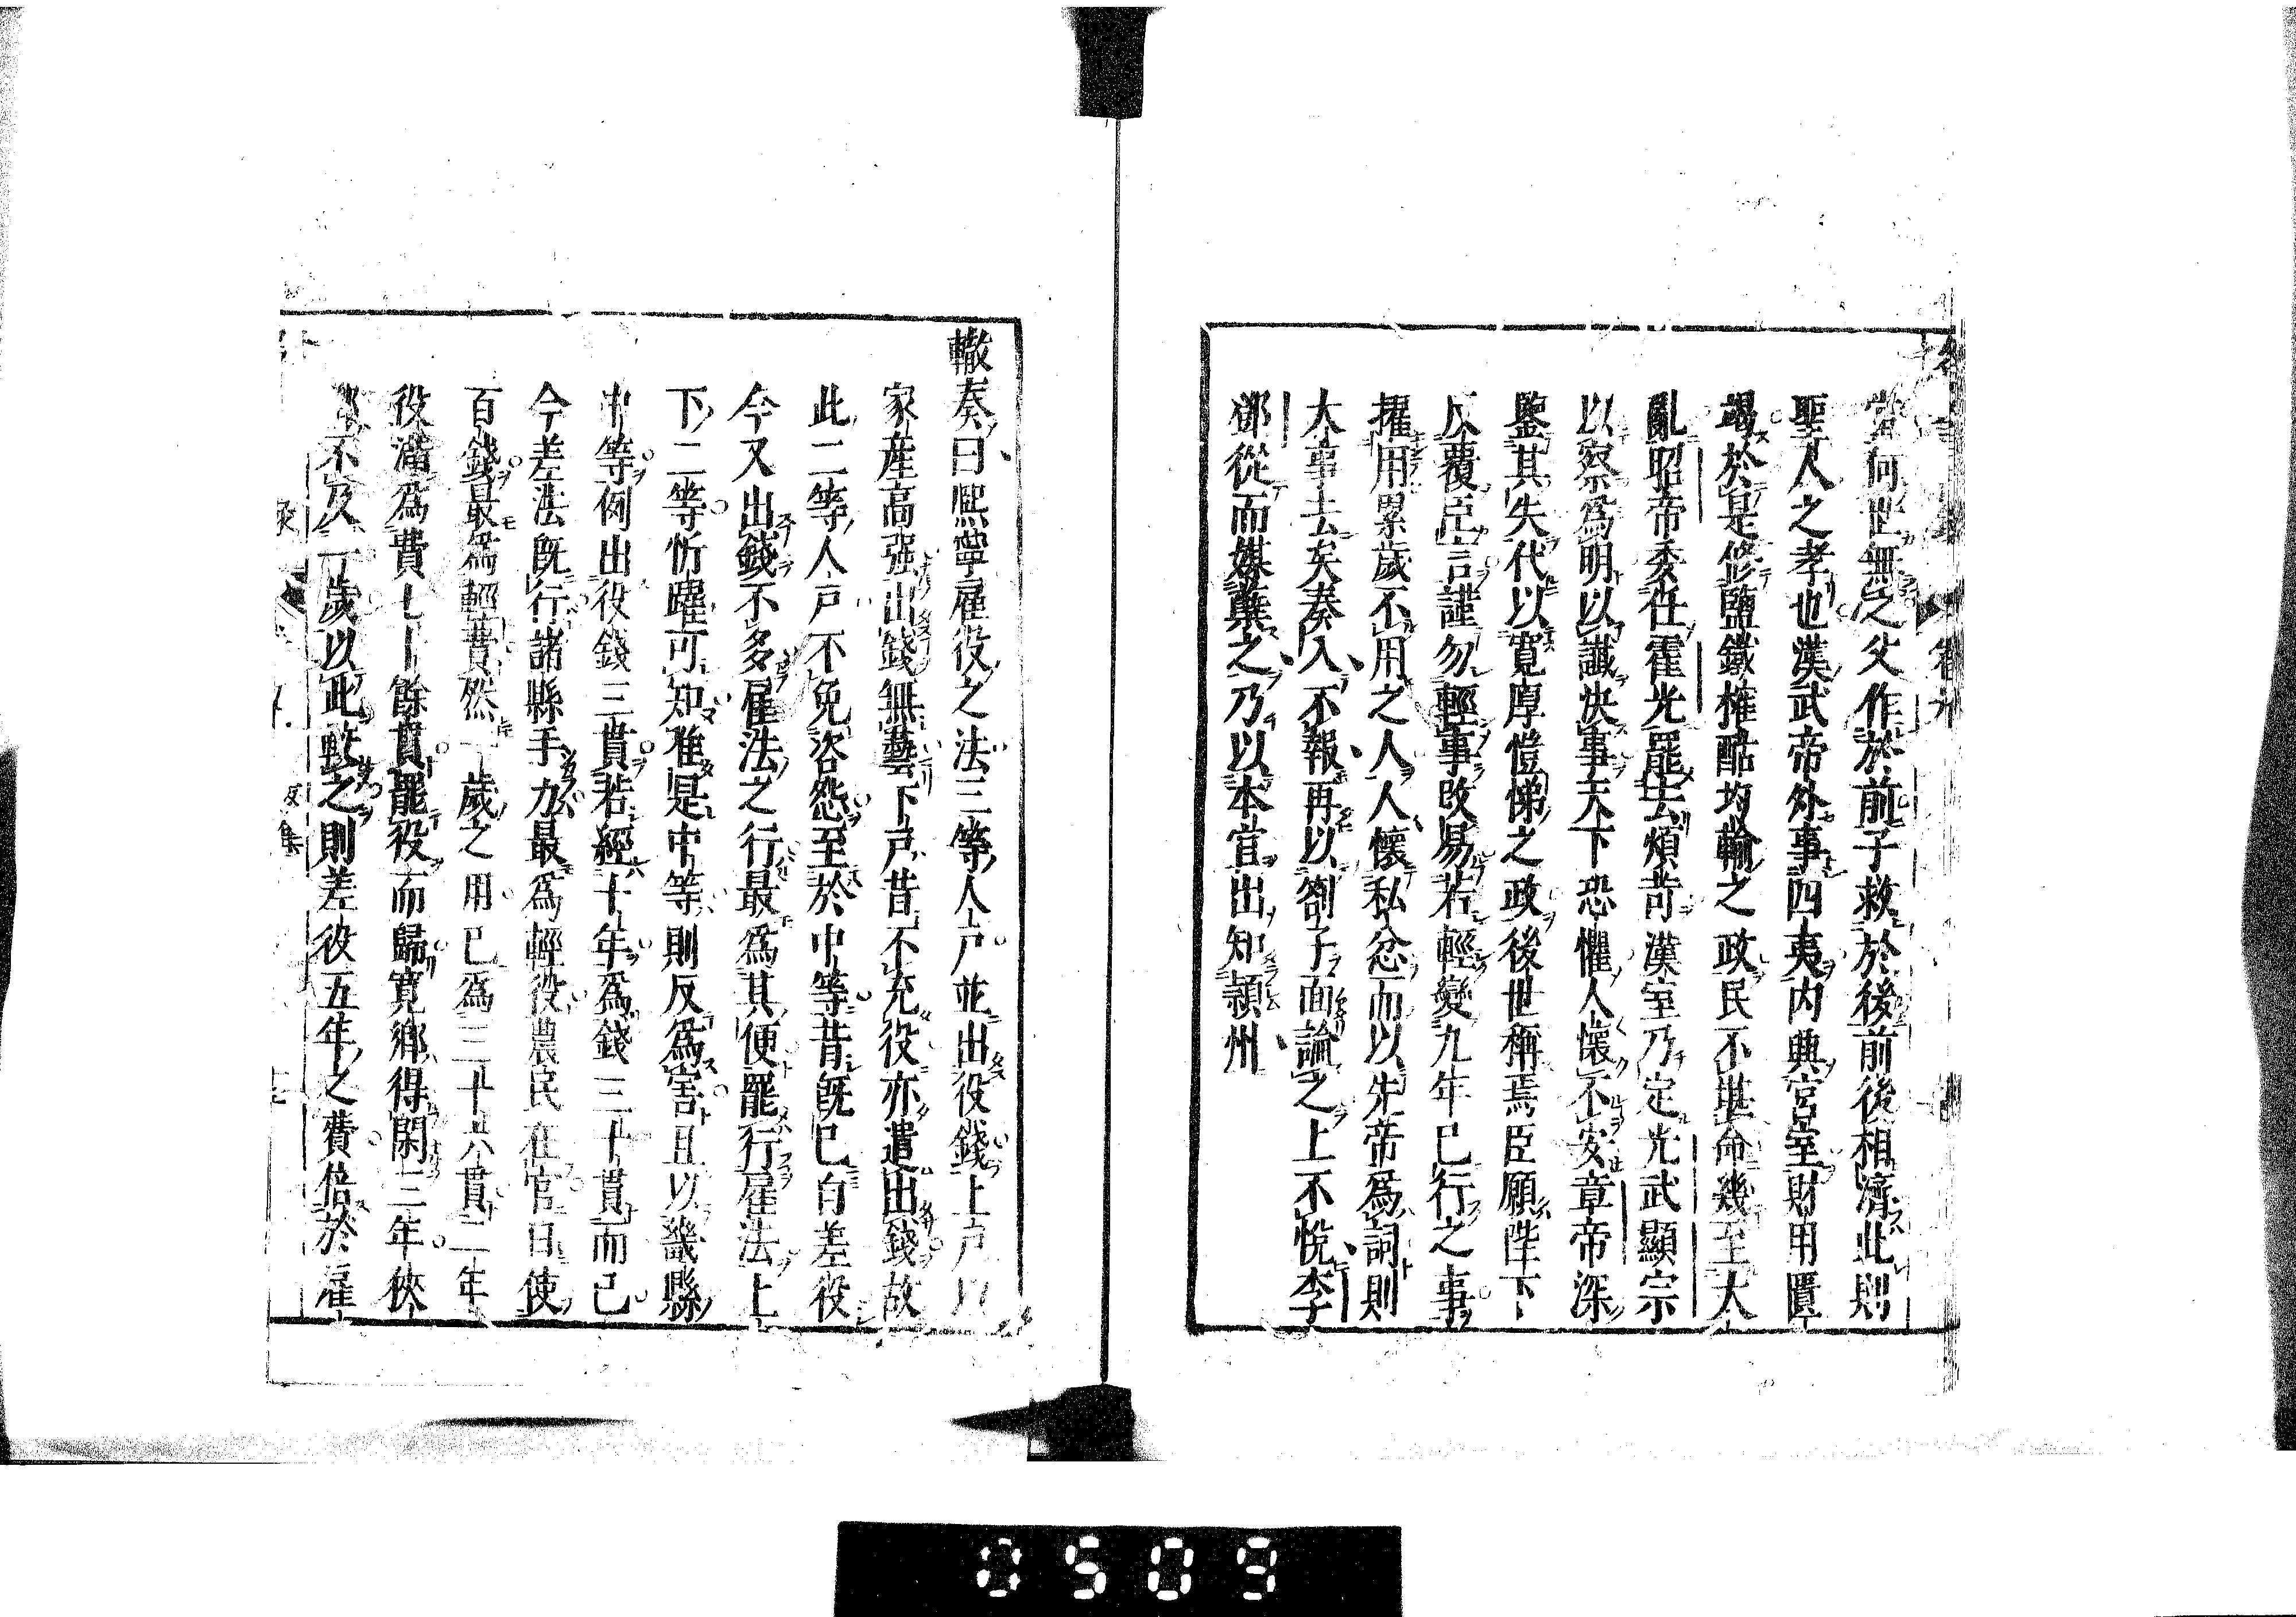 當何世無之父作於前子救於後前後相濟此則
聖人之孝也漢武帝外事四夷內興宮室財用匱
竭於是修鹽鐵榷酤均輸之政民不堪命幾至大
亂昭帝委任霍光罷去煩苛漢室乃定光武顯宗
以察爲明以讖決事天下恐懼人懷不安章帝深
鑒其失代以寬厚愷悌之政後世稱焉臣願陛下
反覆臣言謹勿輕事改易若輕變九年已行之事
擢用累歲不用之人人懷私忿而以先帝爲詞則
大事去矣奏入不報再以劄子面論之上不悅李
鄧從而媒糵之乃以本官出知頴州
轍奏曰熙寧雇役之法三等人戶並出役錢上戶以
家產高强出錢無藝下戶昔不充役亦遣出錢故
此二等人戶不免咨怨至於中等昔旣已自差役
今又出錢不多雇法之行最爲其便罷行雇法上
下二等忻躍可知唯是中等則反爲害且以畿縣
中等例出役錢三貫若經十年爲錢三十貫而已
今差法旣行諸縣手力最爲輕役農民在官日使
百錢最爲輕費然一歲之用已爲三十六貫二年
役滿爲費七十餘貫罷役而歸寬鄉得閑三年狹
鄉不及一歲以此較之則差役五年之費倍於雇
0509